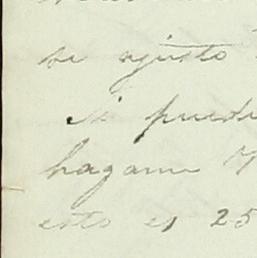 se ajusto
Si puede
hagame
esto es 25